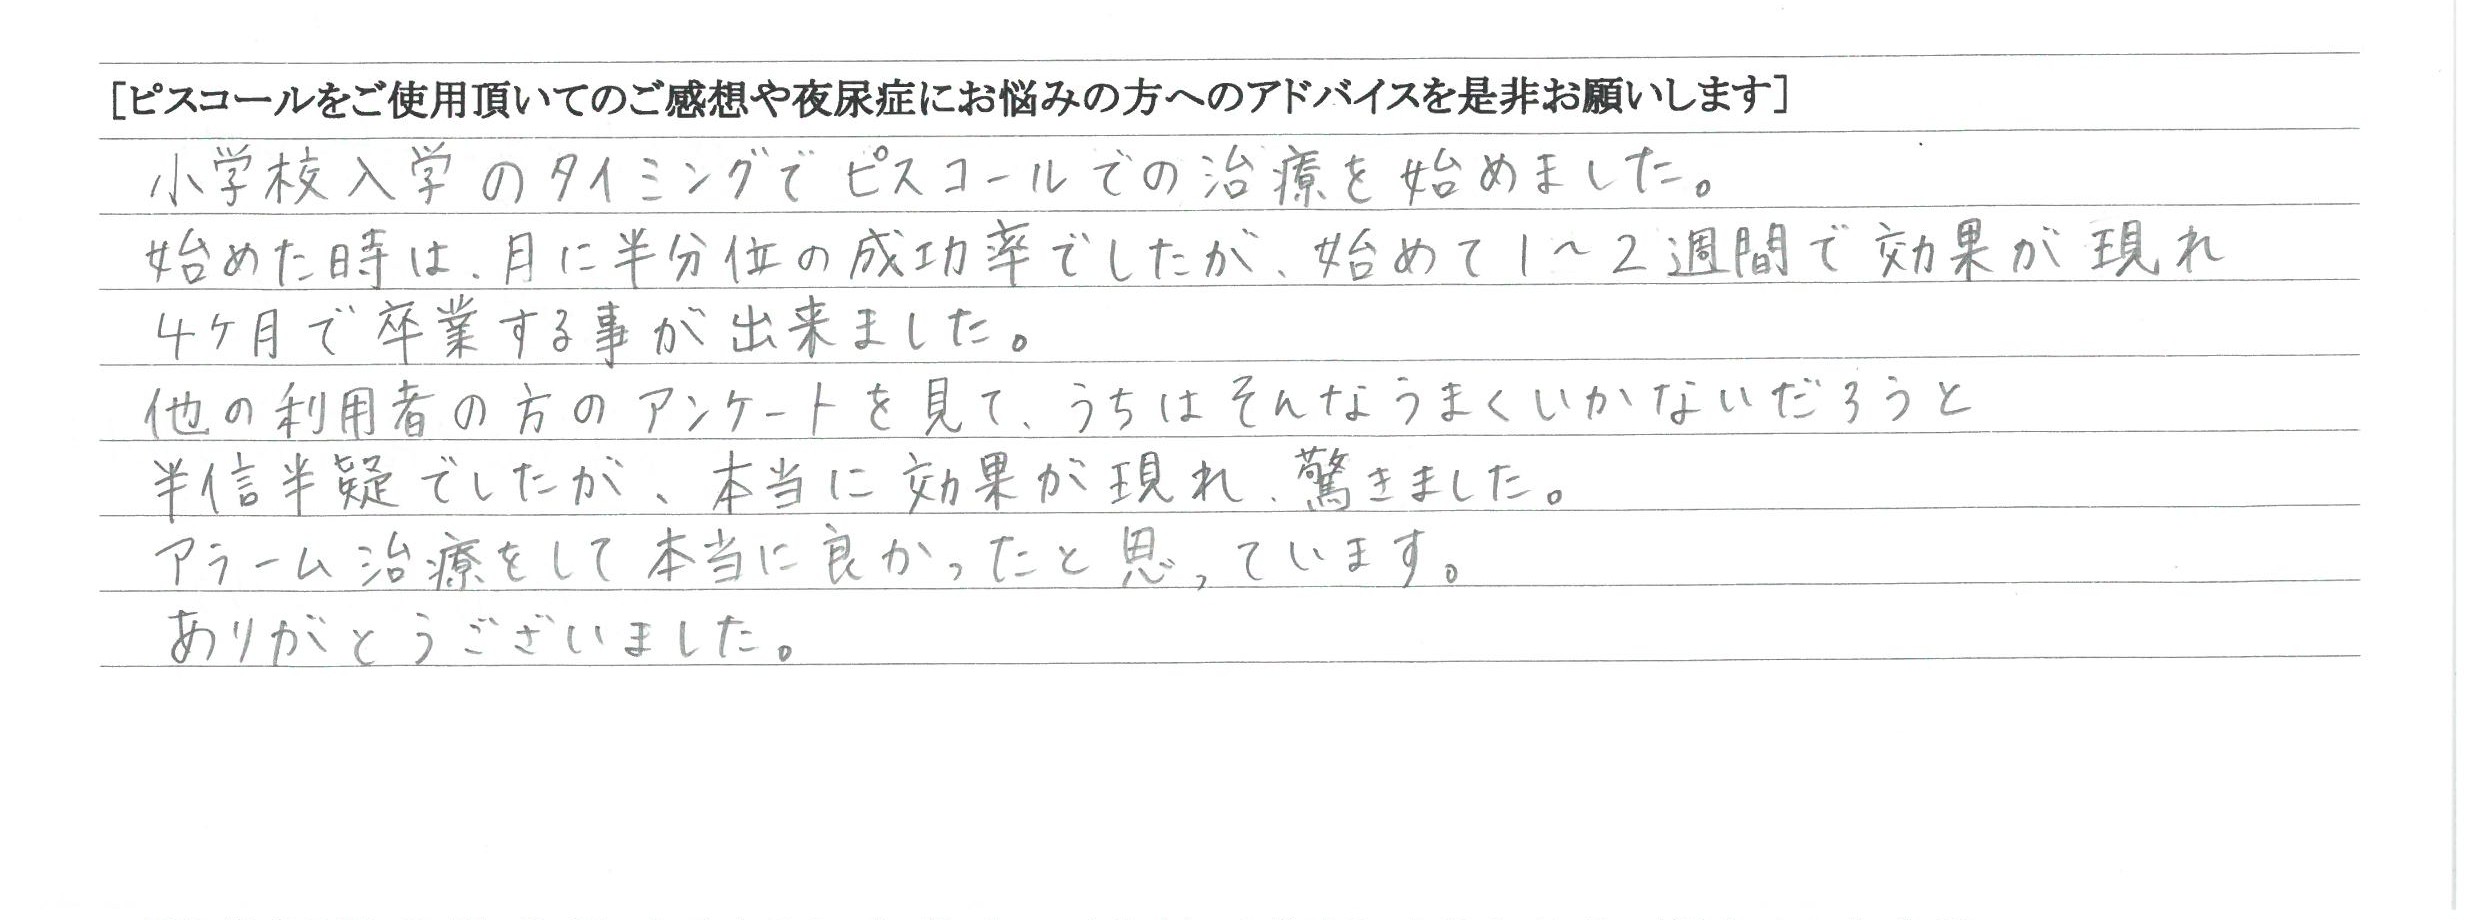 [ピスコールをご使用頂いてのご感想や夜尿症にお悩みの方へのアドバイスを是非お願いします]
小学校入学のタイミングでピスコールでの治療を始めました。
始めた時は、月に半分位の成功率でしたが、始めて1~2週間で効果が現れ
4ケ月で卒業する事が出来ました。
他の利用者の方のアンケートを見て、うちはそんなうまくいかないだろうと
半信半疑でしたが、本当に効果が現れ、驚きました。
アラーム治療をして本当に良かったと思っています。
ありがとうございました。